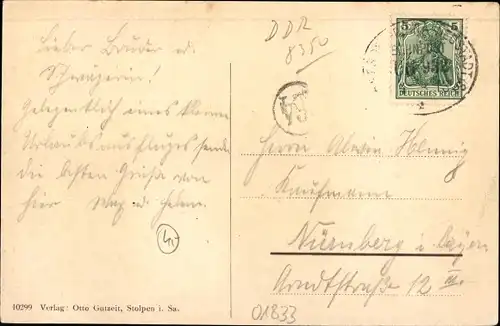 Lieber Bruder u.
Schwägerin!
Gelegentlich eines kleinen
Urlaubsausfluges sende
die besten Grüße von
hier Max u. Helene.
10299 Verlag: Otto Gutzeit, Stolpen i. Sa.
DDR
8350
5 5
DEUTSCHES REICH
Herrn Alwin Hennig
Kaufmann
Nürnberg i. Bayern
Arndtstraße 12 III.
01833